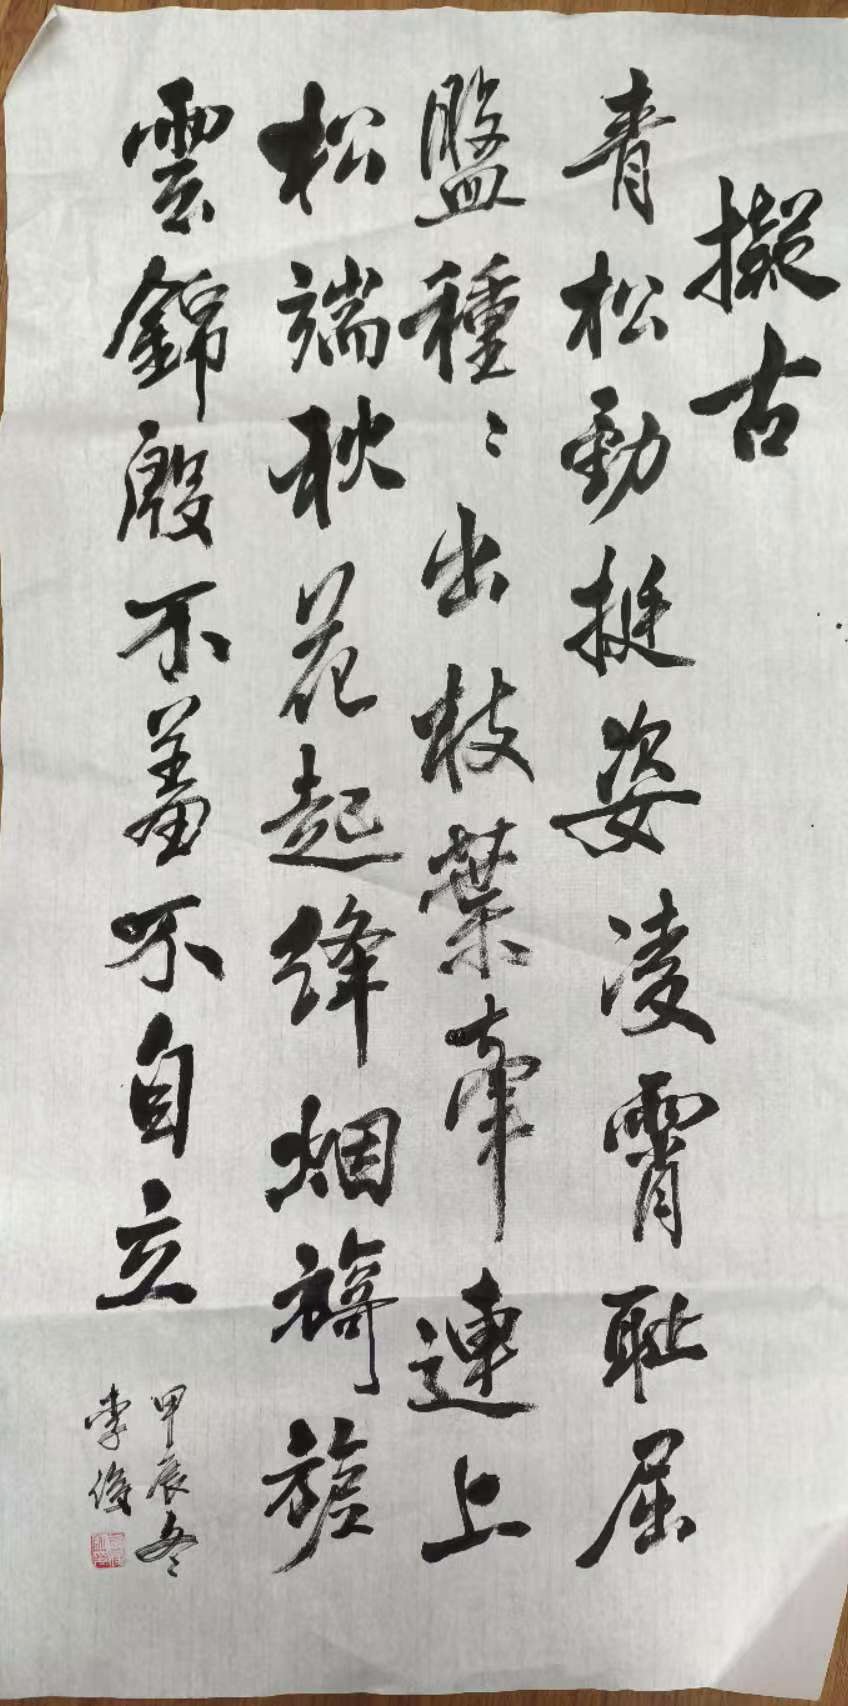 擬古
青松勁挺姿凌霄耻屈
盤種々出枝葉牽連上
松端秋花起絳烟旖旎
雲錦殷不羞不自立
甲辰冬
李